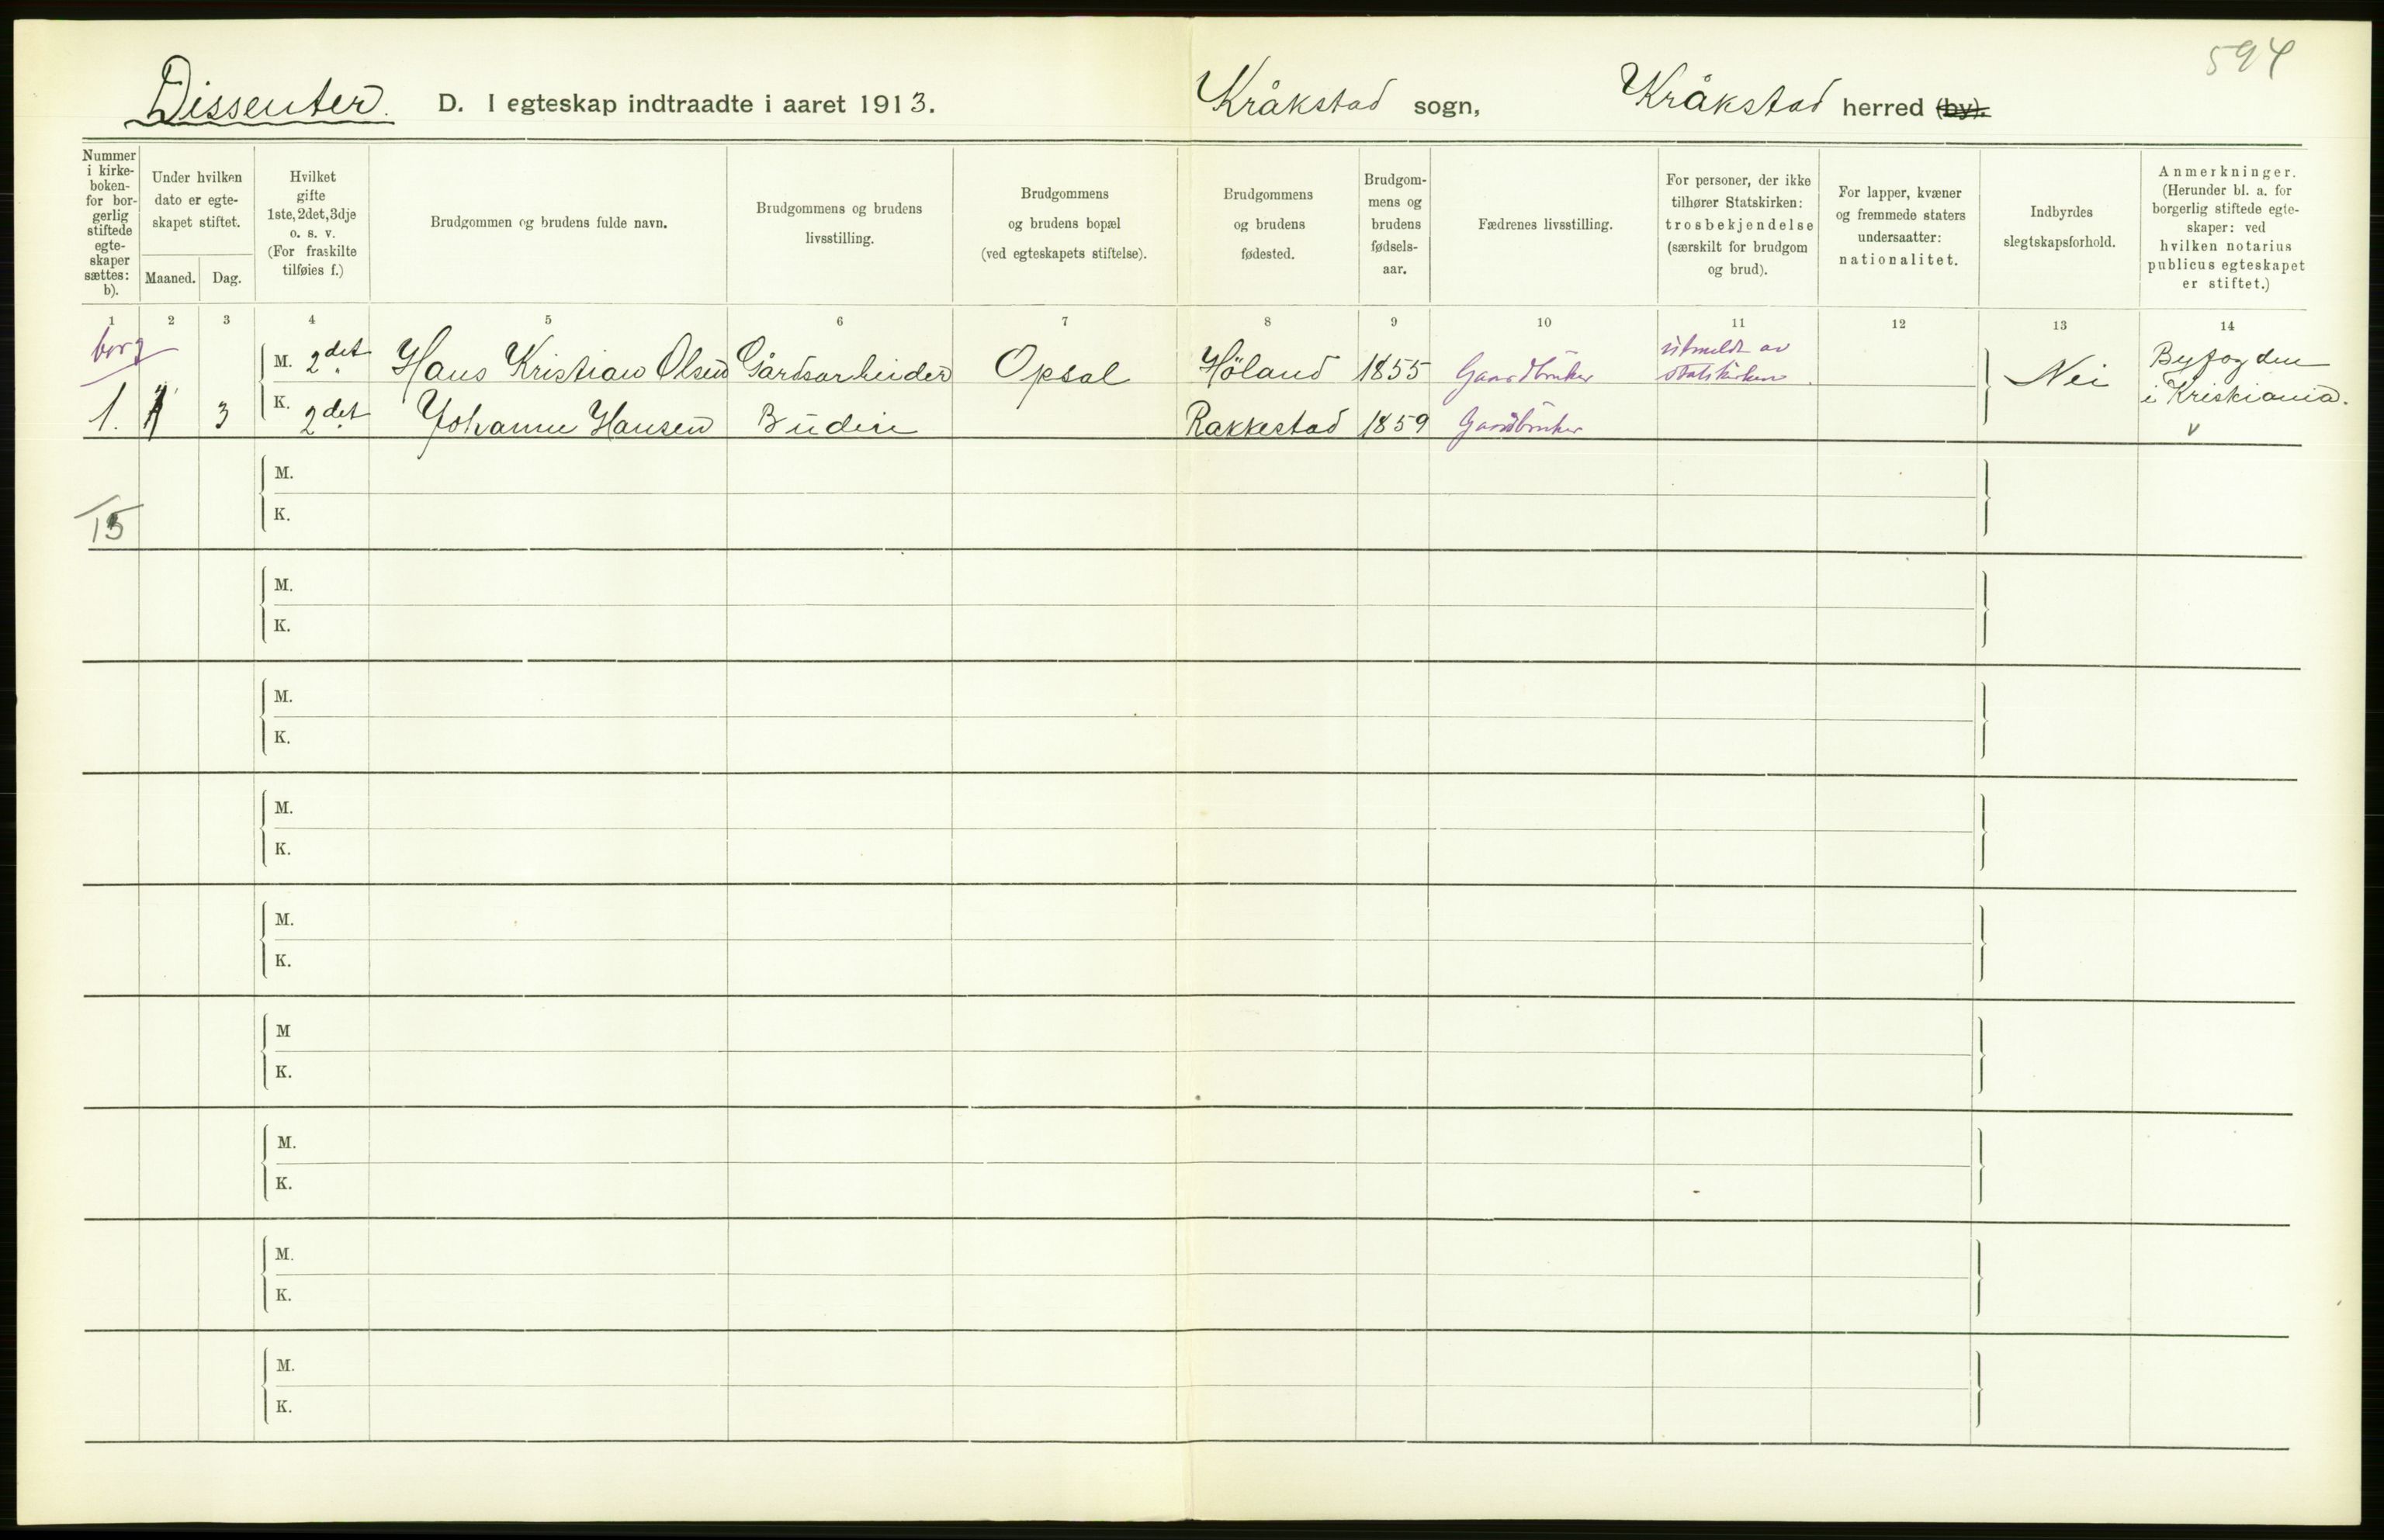 594
Dissenter. D. I egteskap indtraadte i aaret 1913. Kråkstad sogn, Kråkstad herred (by).
Nummer i kirke-boken- for bor-gerlig stiftede egte-skaper sættes: b).
Under hvilken dato er egte-skapet stiftet.
Maaned. Dag.
Hvilket gifte 1ste, 2det, 3dje o. s. v. (For fraskilte tilføies f.)
Brudgommen og brudens fulde navn.
Brudgommens og brudens livsstilling.
Brudgommens og brudens bopæl (ved egteskapets stiftelse).
Brudgommens og brudens fødested.
Brudgom-mens og brudens fødsels-aar.
Fædrenes livsstilling.
For personer, der ikke tilhører Statskirken: trosbekjendelse (særskilt for brudgom og brud).
For lapper, kvæner og fremmede staters undersaatter: nationalitet.
Indbyrdes slegtskapsforhold.
Anmerkninger. (Herunder bl. a. for borgerlig stiftede egte-skaper: ved hvilken notarius publicus egteskapet er stiftet.)
1 2 3 4 5 6 7 8 9 10 11 12 13 14
borg
M. 2det Hans Kristian Olsen Gårdsarbeider Opsal Höland 1855 Gaardbruker utmeldt av statskirken Nei Byfogden i Kristiania.
1. 3 K. 2det Johanne Hansen Budeie Rakkestad 1859 Gaardbruker v
M.
15 K.
M.
K.
M.
K.
M.
K.
M.
K.
M
K.
M.
K.
M.
K.
M.
K.